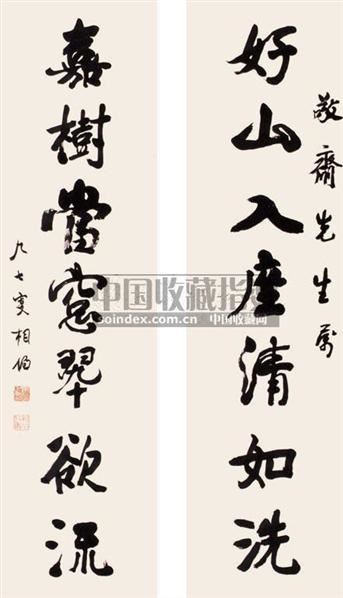 敬齋先生屬
好山入座清如洗
嘉樹當窓翠欲流
九七叟相伯
中国收藏指
soindex.com.cn 中国收藏网